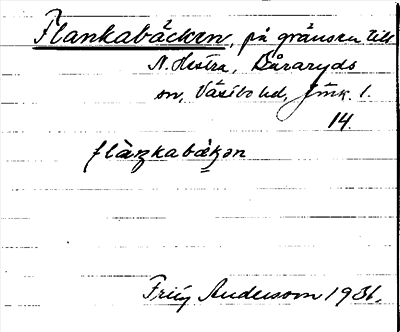 Flankabäcken, på gränsen till
N. Hestra, Båraryds
sn, Västbo hd, Jönk. l.
14.
flàŋkabæ̀kən
Frily Anderson 1931.